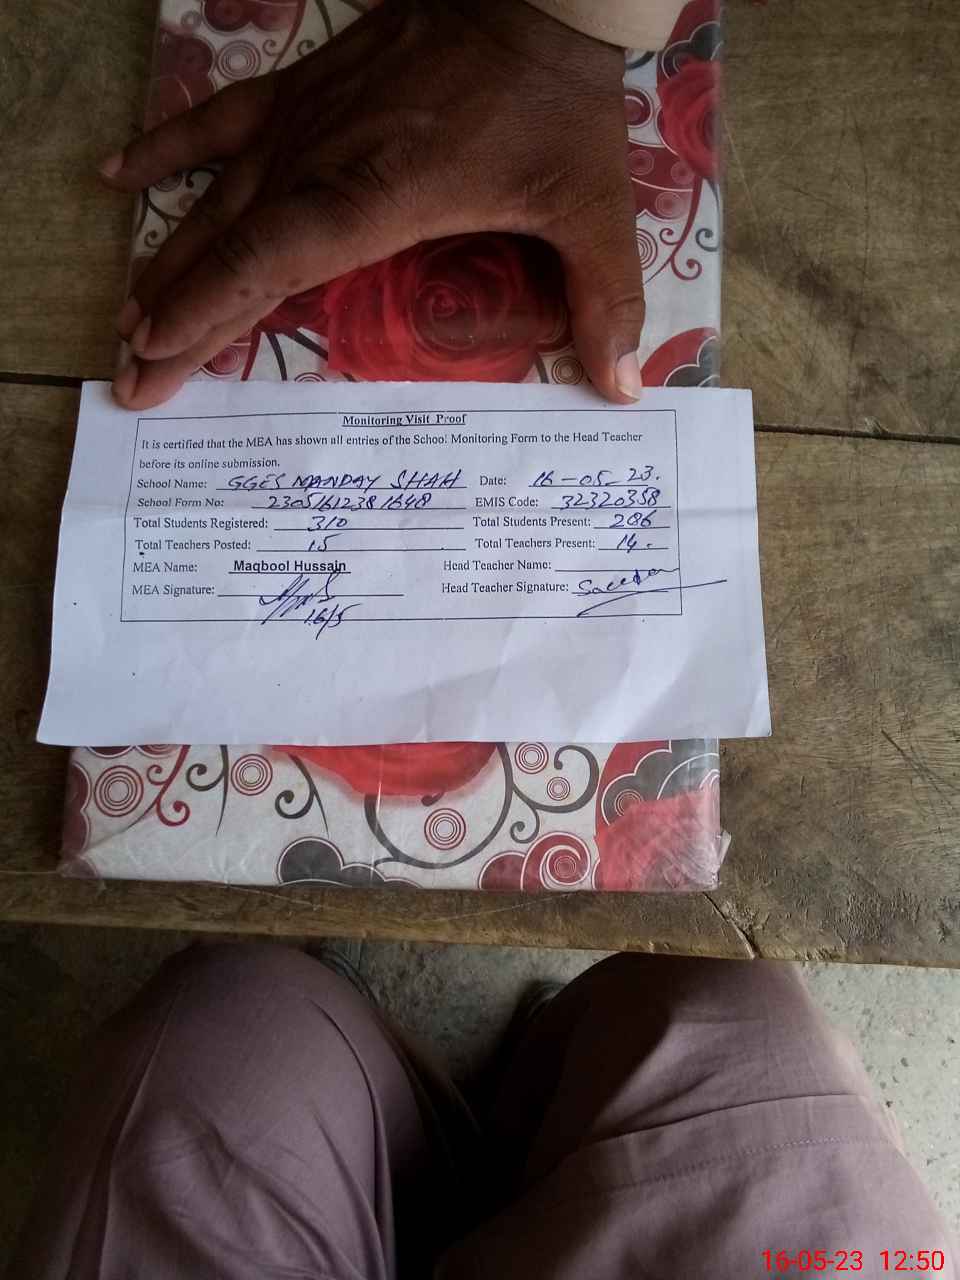 Monitoring Visit Proof
It is certified that the MEA has shown all entries of the School Monitoring Form to the Head Teacher
before its online submission.
School Name: GGES MANDAY SHAH Date: 16-05-23.
School Form No: 2305161238 1648 EMIS Code: 32320358
Total Students Registered: 310 Total Students Present: 286
Total Teachers Posted: 15 Total Teachers Present: 14.
MEA Name: Maqbool Hussain Head Teacher Name:
MEA Signature: Head Teacher Signature:
16/5
16-05-23 12:50